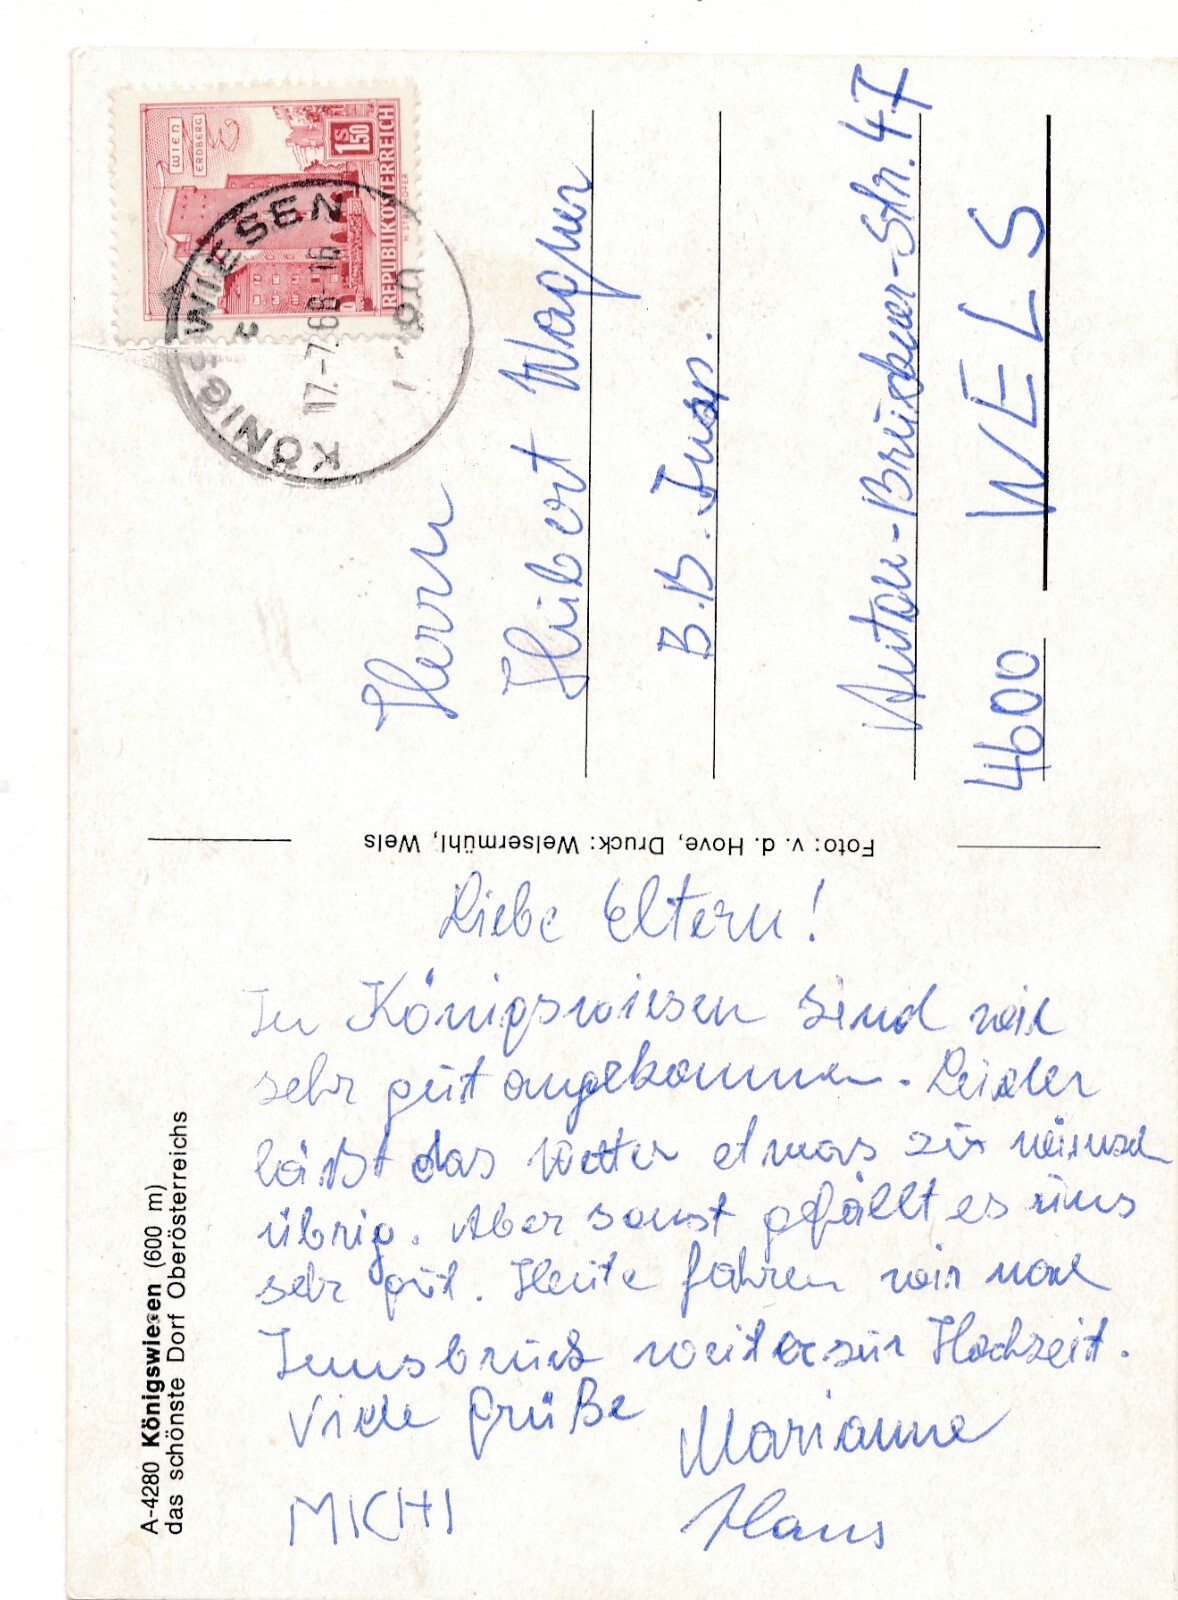 WIEN
ERDBERG
S 1.50
REPUBLIK ÖSTERREICH
KÖNIGSWIESEN
17.-7.68-16
Herrn
Hubert Wagner
B.B. Insp.
Anton-Bruckner-Str. 47
4600 WELS
Foto: v. d. Hove, Druck: Welsermühl, Wels
Liebe Eltern!
In Königswiesen sind wir
sehr gut angekommen. Leider
läßt das Wetter etwas zu wünsch
übrig. Aber sonst gefällt es uns
sehr gut. Heute fahren wir nach
Innsbruck weiter zur Hochzeit.
Viele Grüße Marianne
MICHI Hans
A-4280 Königswiesen (600 m)
das schönste Dorf Oberösterreichs